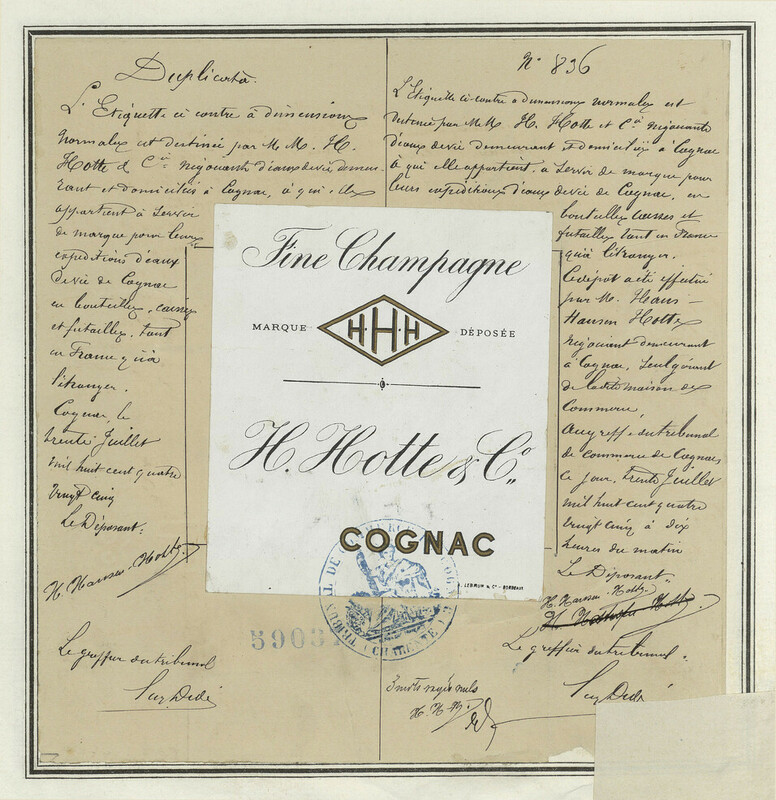 Duplicata.
L'Etiquette ci contre à dimensions
normales est destinée par MM. H.
Hotte & Cie négociants d'eaux de vie demeu-
rant et domiciliés à Cognac, à qui elle
appartient à servir
de marque pour leurs
expéditions d'eaux
de vie de Cognac
en bouteilles, caisses
et futailles, tant
en France qu'à
l'étranger.
Cognac, le
trente Juillet
mil huit cent quatre
vingt cinq
Le Déposant:
H. Hansen-Hotte
Le greffier du tribunal
No 836
L'Etiquette ci-contre à dimensions normales est
destinée par MM. H. Hotte et Cie négociants
d'eaux de vie demeurant & domiciliés à Cognac
à qui elle appartient, à servir de marque pour
leurs expéditions d'eaux de vie de Cognac, en
bouteilles caisses et
futailles tant en France
qu'à l'étranger.
Ce dépôt a été effectué
par M. Hans-
Hansen Hotte
négociant demeurant
à Cognac, seul gérant
de la dite maison de
Commerce.
Au greffe du tribunal
de commerce de Cognac,
ce jour, trente Juillet
mil huit cent quatre
vingt cinq à dix
heures du matin
Le Déposant
H. Hansen-Hotte
Le greffier du tribunal
3 mots rayés nuls
H. H. H.
Fine Champagne
MARQUE H·H·H DÉPOSÉE
H. Hotte & Co
COGNAC
LEBRUN & Co - BORDEAUX
TRIBUNAL DE COMMERCE
(CHARENTE)
5903